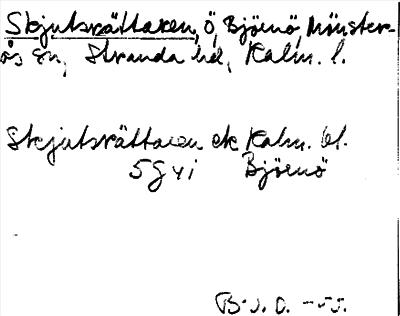 Skjutsrättaren, ö, Björnö, Mönster-
ås sn, Stranda hd, Kalm. l.
Skjutsrättaren ek Kalm. bl.
5G yi Björnö
B.J.O. -55.